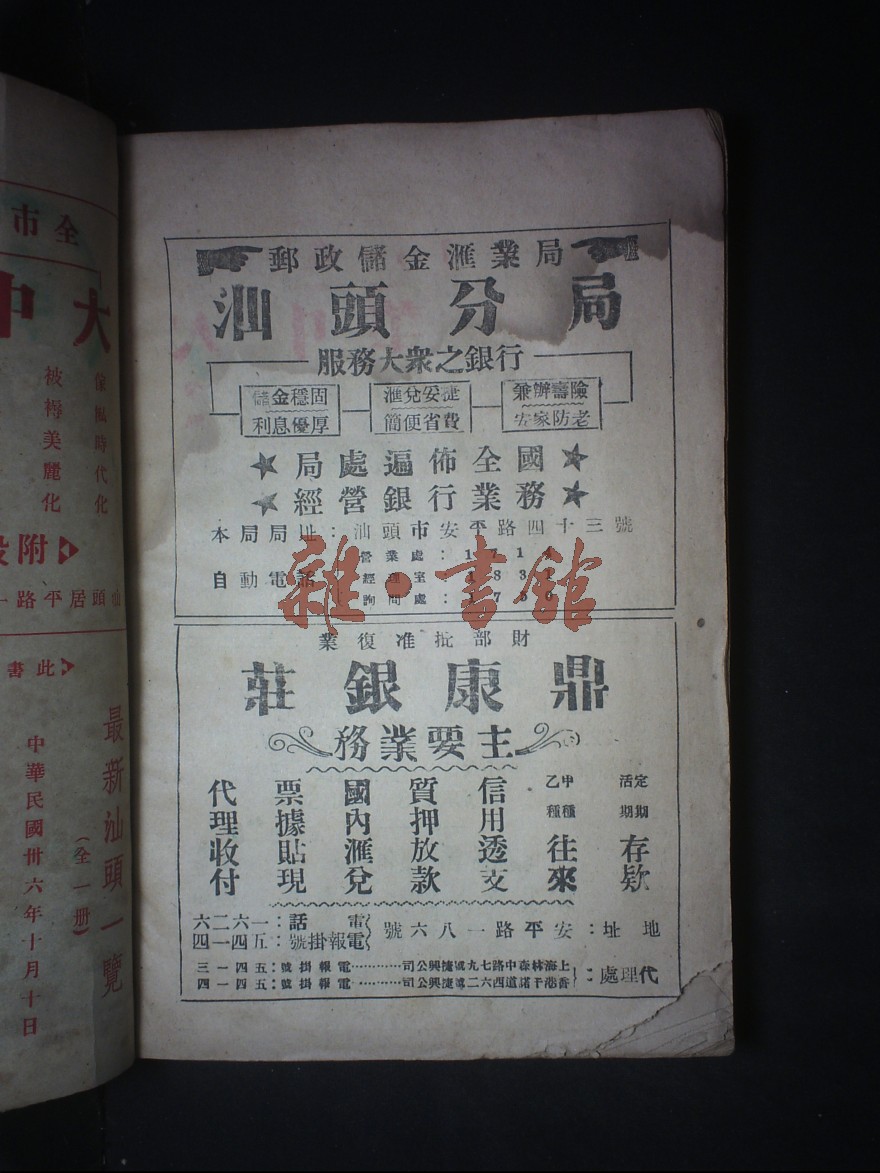 郵政儲金滙業局
汕頭分局
服務大衆之銀行
儲金穩固
利息優厚
滙兌妥捷
簡便省費
兼辦壽險
安家防老
★局處遍佈全國★
★經營銀行業務★
本局局址:汕頭市安平路四十三號
自動電話
營業處:
經理室:
詢問處:
雜·書館
財部批准復業
鼎康銀莊
主要業務
定期活期存欵
甲種乙種往來
信用透支
質押放款
國內滙兌
票據貼現
代理收付
地址:安平路一八六號
電話:一六二六
電報掛號:五四一四
代理處:
上海林森中路七九號捷興公司…………電報掛號:五四一三
香港干諾道西四六二號捷興公司…………電報掛號:五四一四
全市
大中
傢俬時代化
被褥美麗化
附設
汕頭居平路一
此書
最新汕頭一覽
(全一册)
中華民國卅六年十月十日